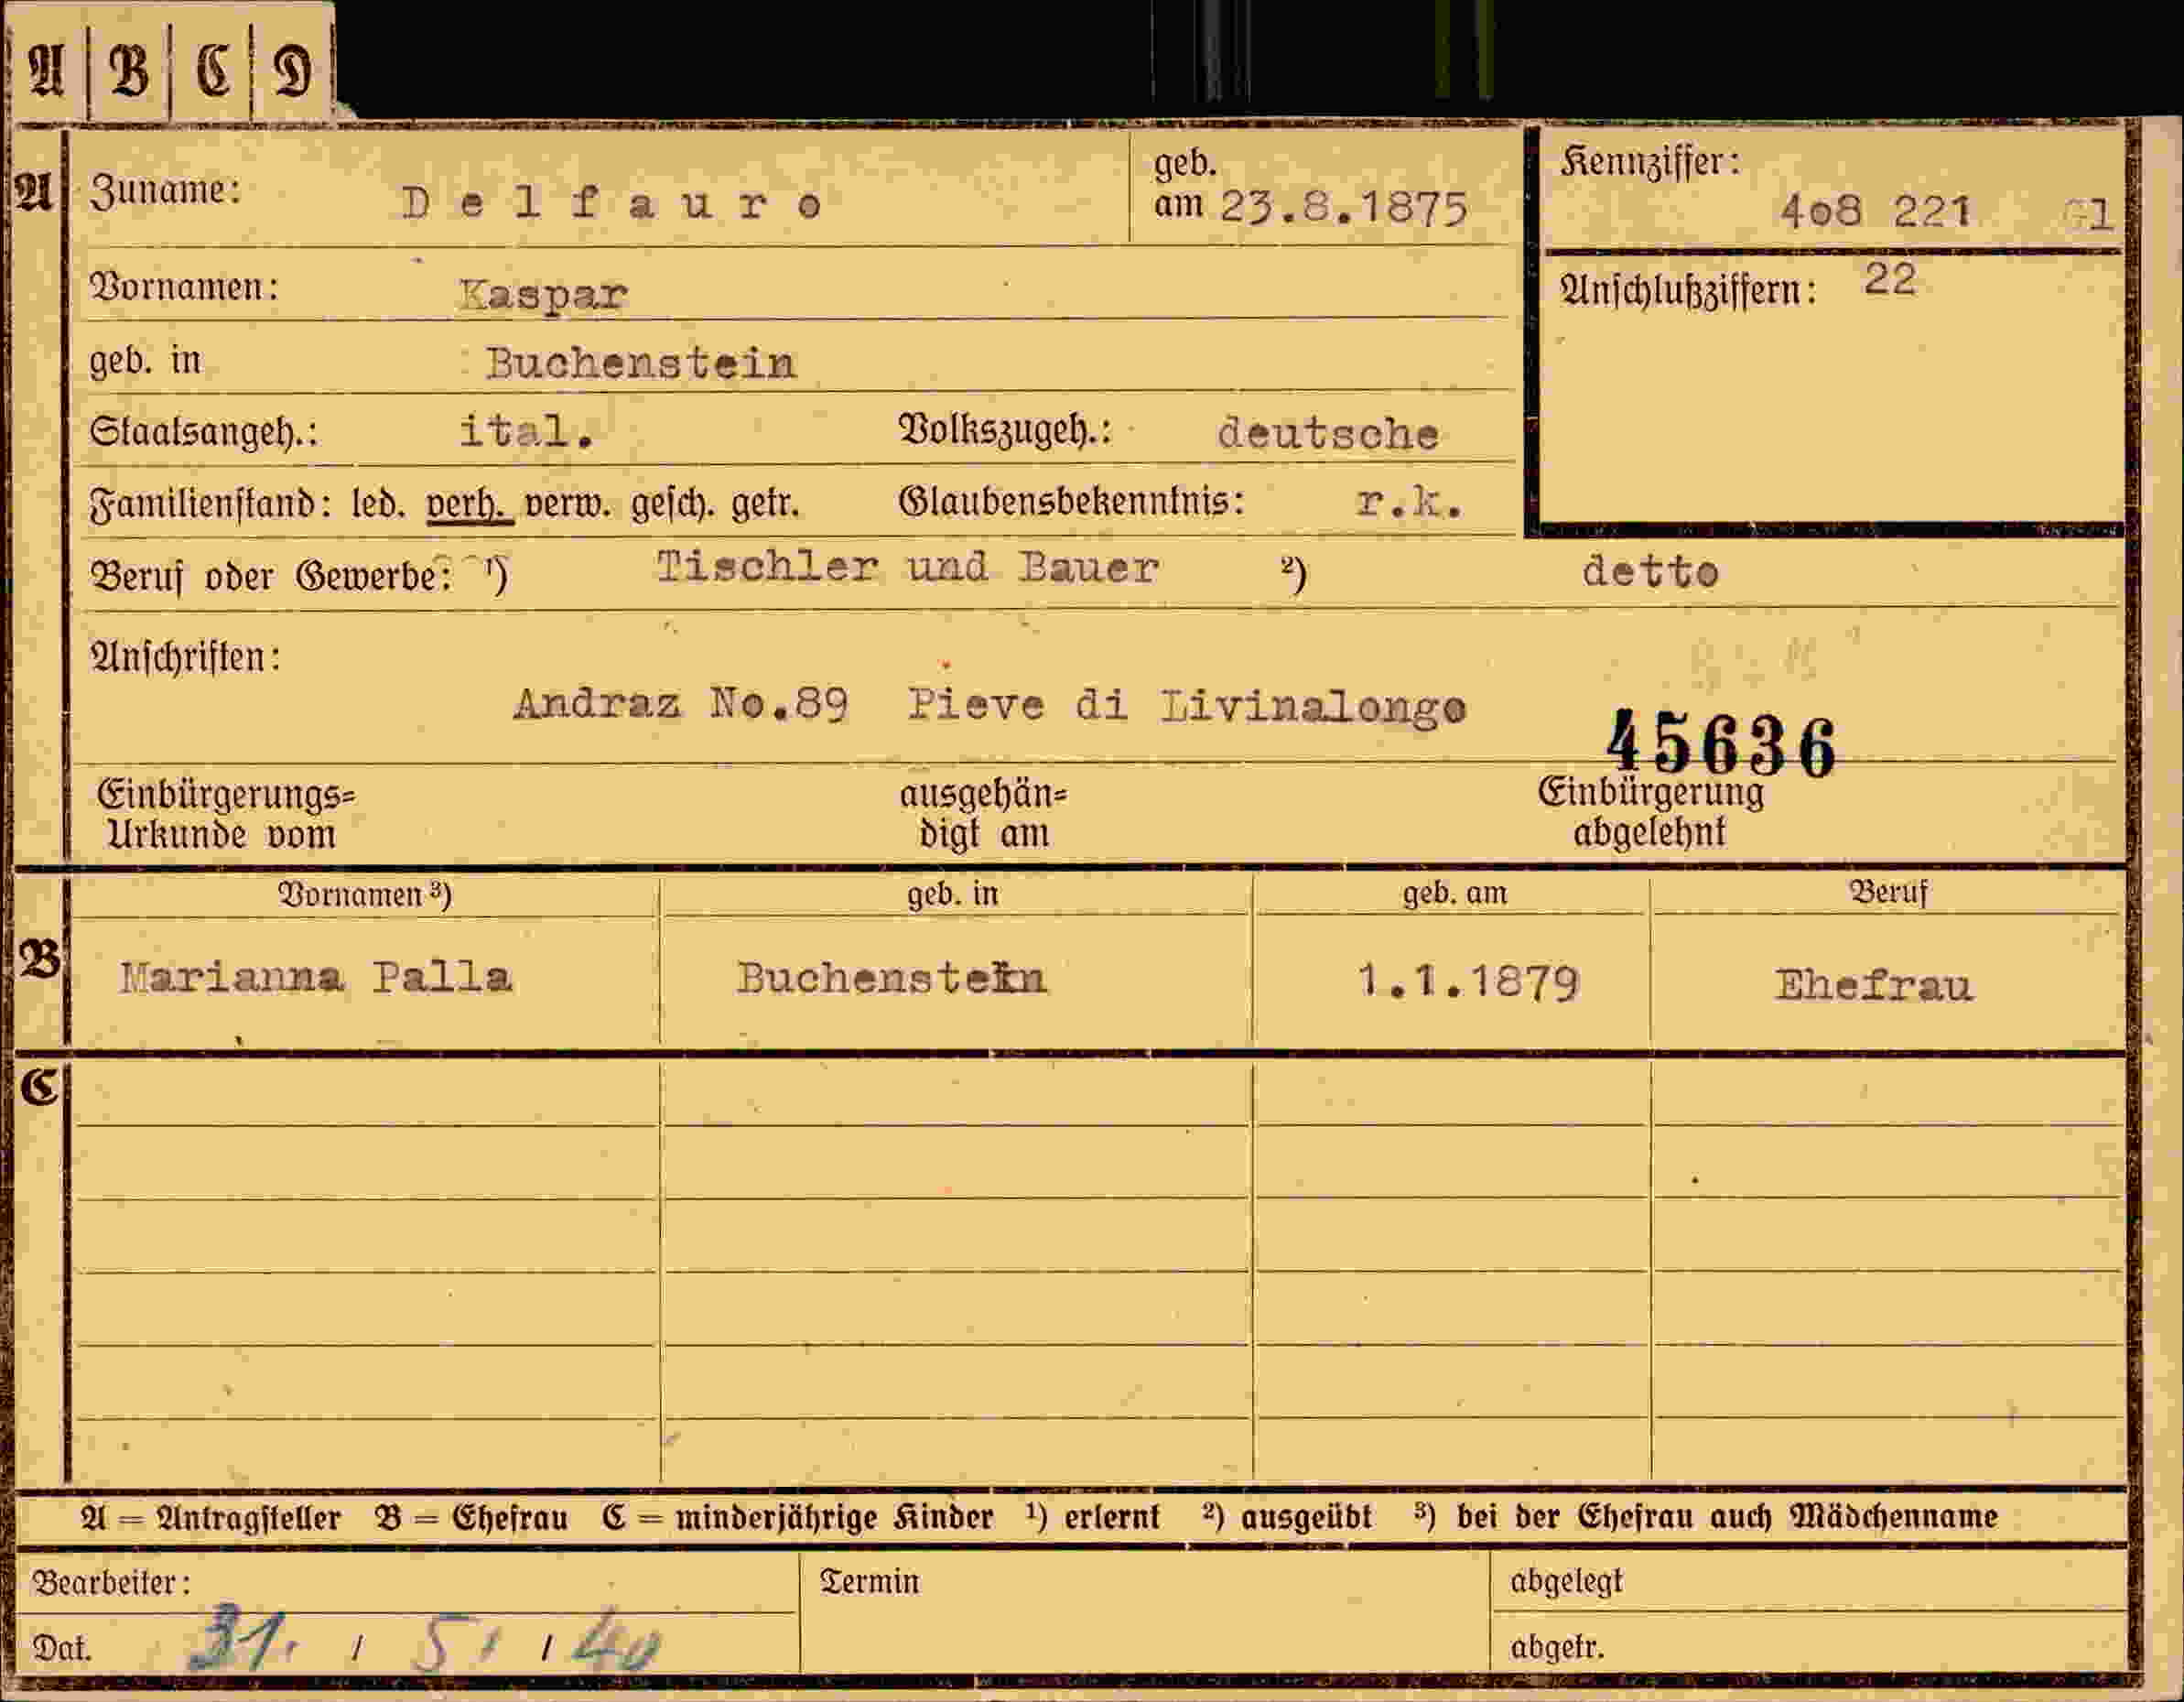 A B C D
A Zuname: Delfauro geb. am 23.8.1875 Kennziffer: 4o8 221 G1
Vornamen: Kaspar Anschlußziffern: 22
geb. in Buchenstein
Staatsangeh.: ital. Volkszugeh.: deutsche
Familienstand: led. verh. verw. gesch. getr. Glaubensbekenntnis: r.k.
Beruf oder Gewerbe: ¹) Tischler und Bauer ²) detto
Anschriften:
Andraz No.89 Pieve di Livinalongo
45636
Einbürgerungs= ausgehän= Einbürgerung
Urkunde vom digt am abgelehnt
Vornamen ³) geb. in geb. am Beruf
B Marianna Palla Buchenstein 1.1.1879 Ehefrau
C
A = Antragsteller B = Ehefrau C = minderjährige Kinder ¹) erlernt ²) ausgeübt ³) bei der Ehefrau auch Mädchenname
Bearbeiter: Termin abgelegt
Dat. 31. / 5. / 40 abgetr.